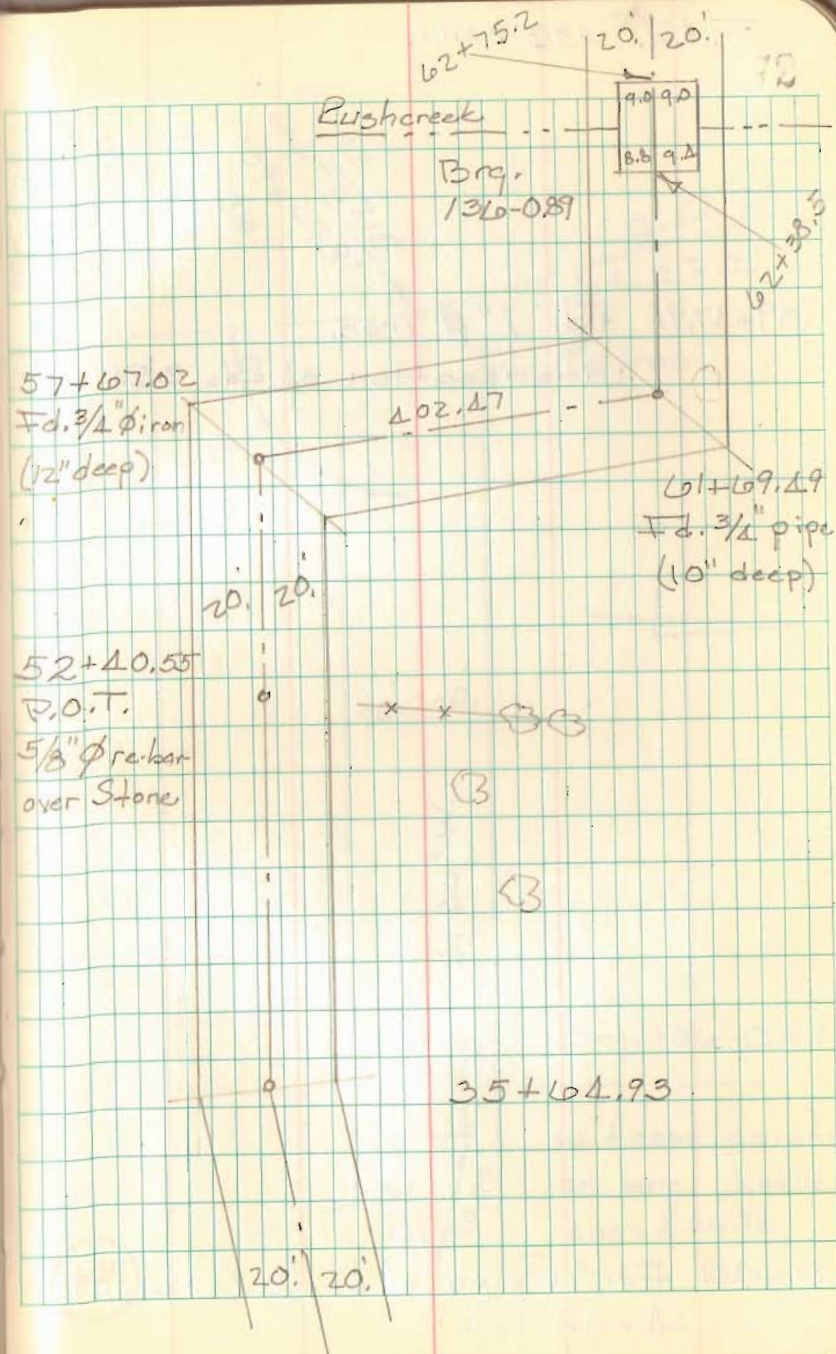 62+75.2
20.' 20.'
Rushcreek
9.0 9.0
8.8 9.4
Brg.
136-0.89
62+38.5
57+67.02
Fd. 3/4" Ø iron
(12" deep)
402.47
61+69.49
Fd. 3/4" pipe
(10" deep)
20.' 20.'
52+40.55
P.O.T.
5/8" Ø re-bar
over Stone
35+64.93
20.' 20.'